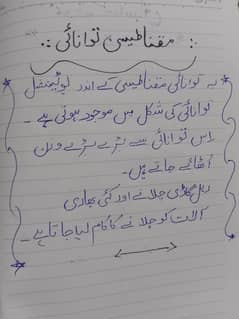 مقناطیسی توانائی
یہ توانائی مقناطیس کے اندر پوٹینشل
توانائی کی شکل میں موجود ہوتی ہے ۔
اس توانائی سے بڑے بڑے وزن
اُٹھائے جاتے ہیں۔
ریل گاڑی چلانے اور کئی بھاری
آلات کو چلانے کا کام لیا جاتا ہے ۔